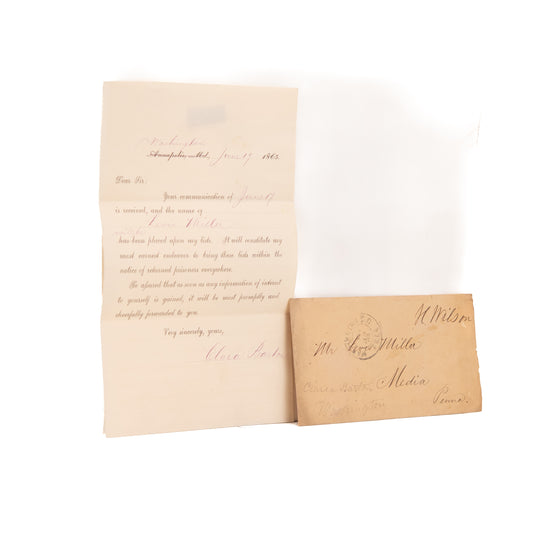 Washington
Annapolis, Md., June 19 1865.
Dear Sir:
Your communication of June 17
is received, and the name of
Levi Miller
has been placed upon my lists. It will constitute my
most earnest endeavor to bring these lists within the
notice of returned prisoners everywhere.
Be assured that as soon as any information of interest
to yourself is gained, it will be most promptly and
cheerfully forwarded to you.
Very sincerely, yours,
Clara Barton
H Wilson
Mr Levi Miller
Media
Penna.
Clara Barton
Washington